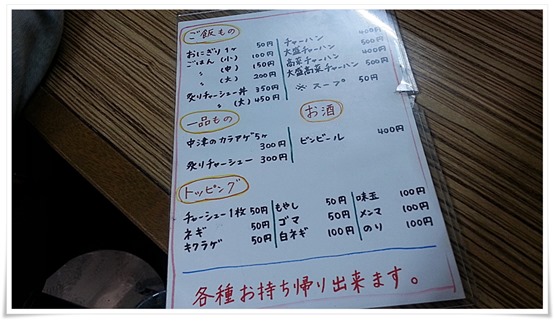 ご飯もの
おにぎり1ヶ 50円
ごはん (小) 100円
〃 (中) 150円
〃 (大) 200円
炙りチャーシュー丼 350円
〃 (大) 450円
チャーハン 400円
大盛チャーハン 500円
高菜チャーハン 400円
大盛高菜チャーハン 500円
※スープ 50円
一品もの
中津のカラアゲ5ヶ 300円
炙りチャーシュー 300円
お酒
ビンビール 400円
トッピング
チャーシュー1枚 50円
ネギ 50円
キクラゲ 50円
もやし 50円
ゴマ 50円
白ネギ 100円
味玉 100円
メンマ 100円
のり 100円
各種お持ち帰り出来ます。